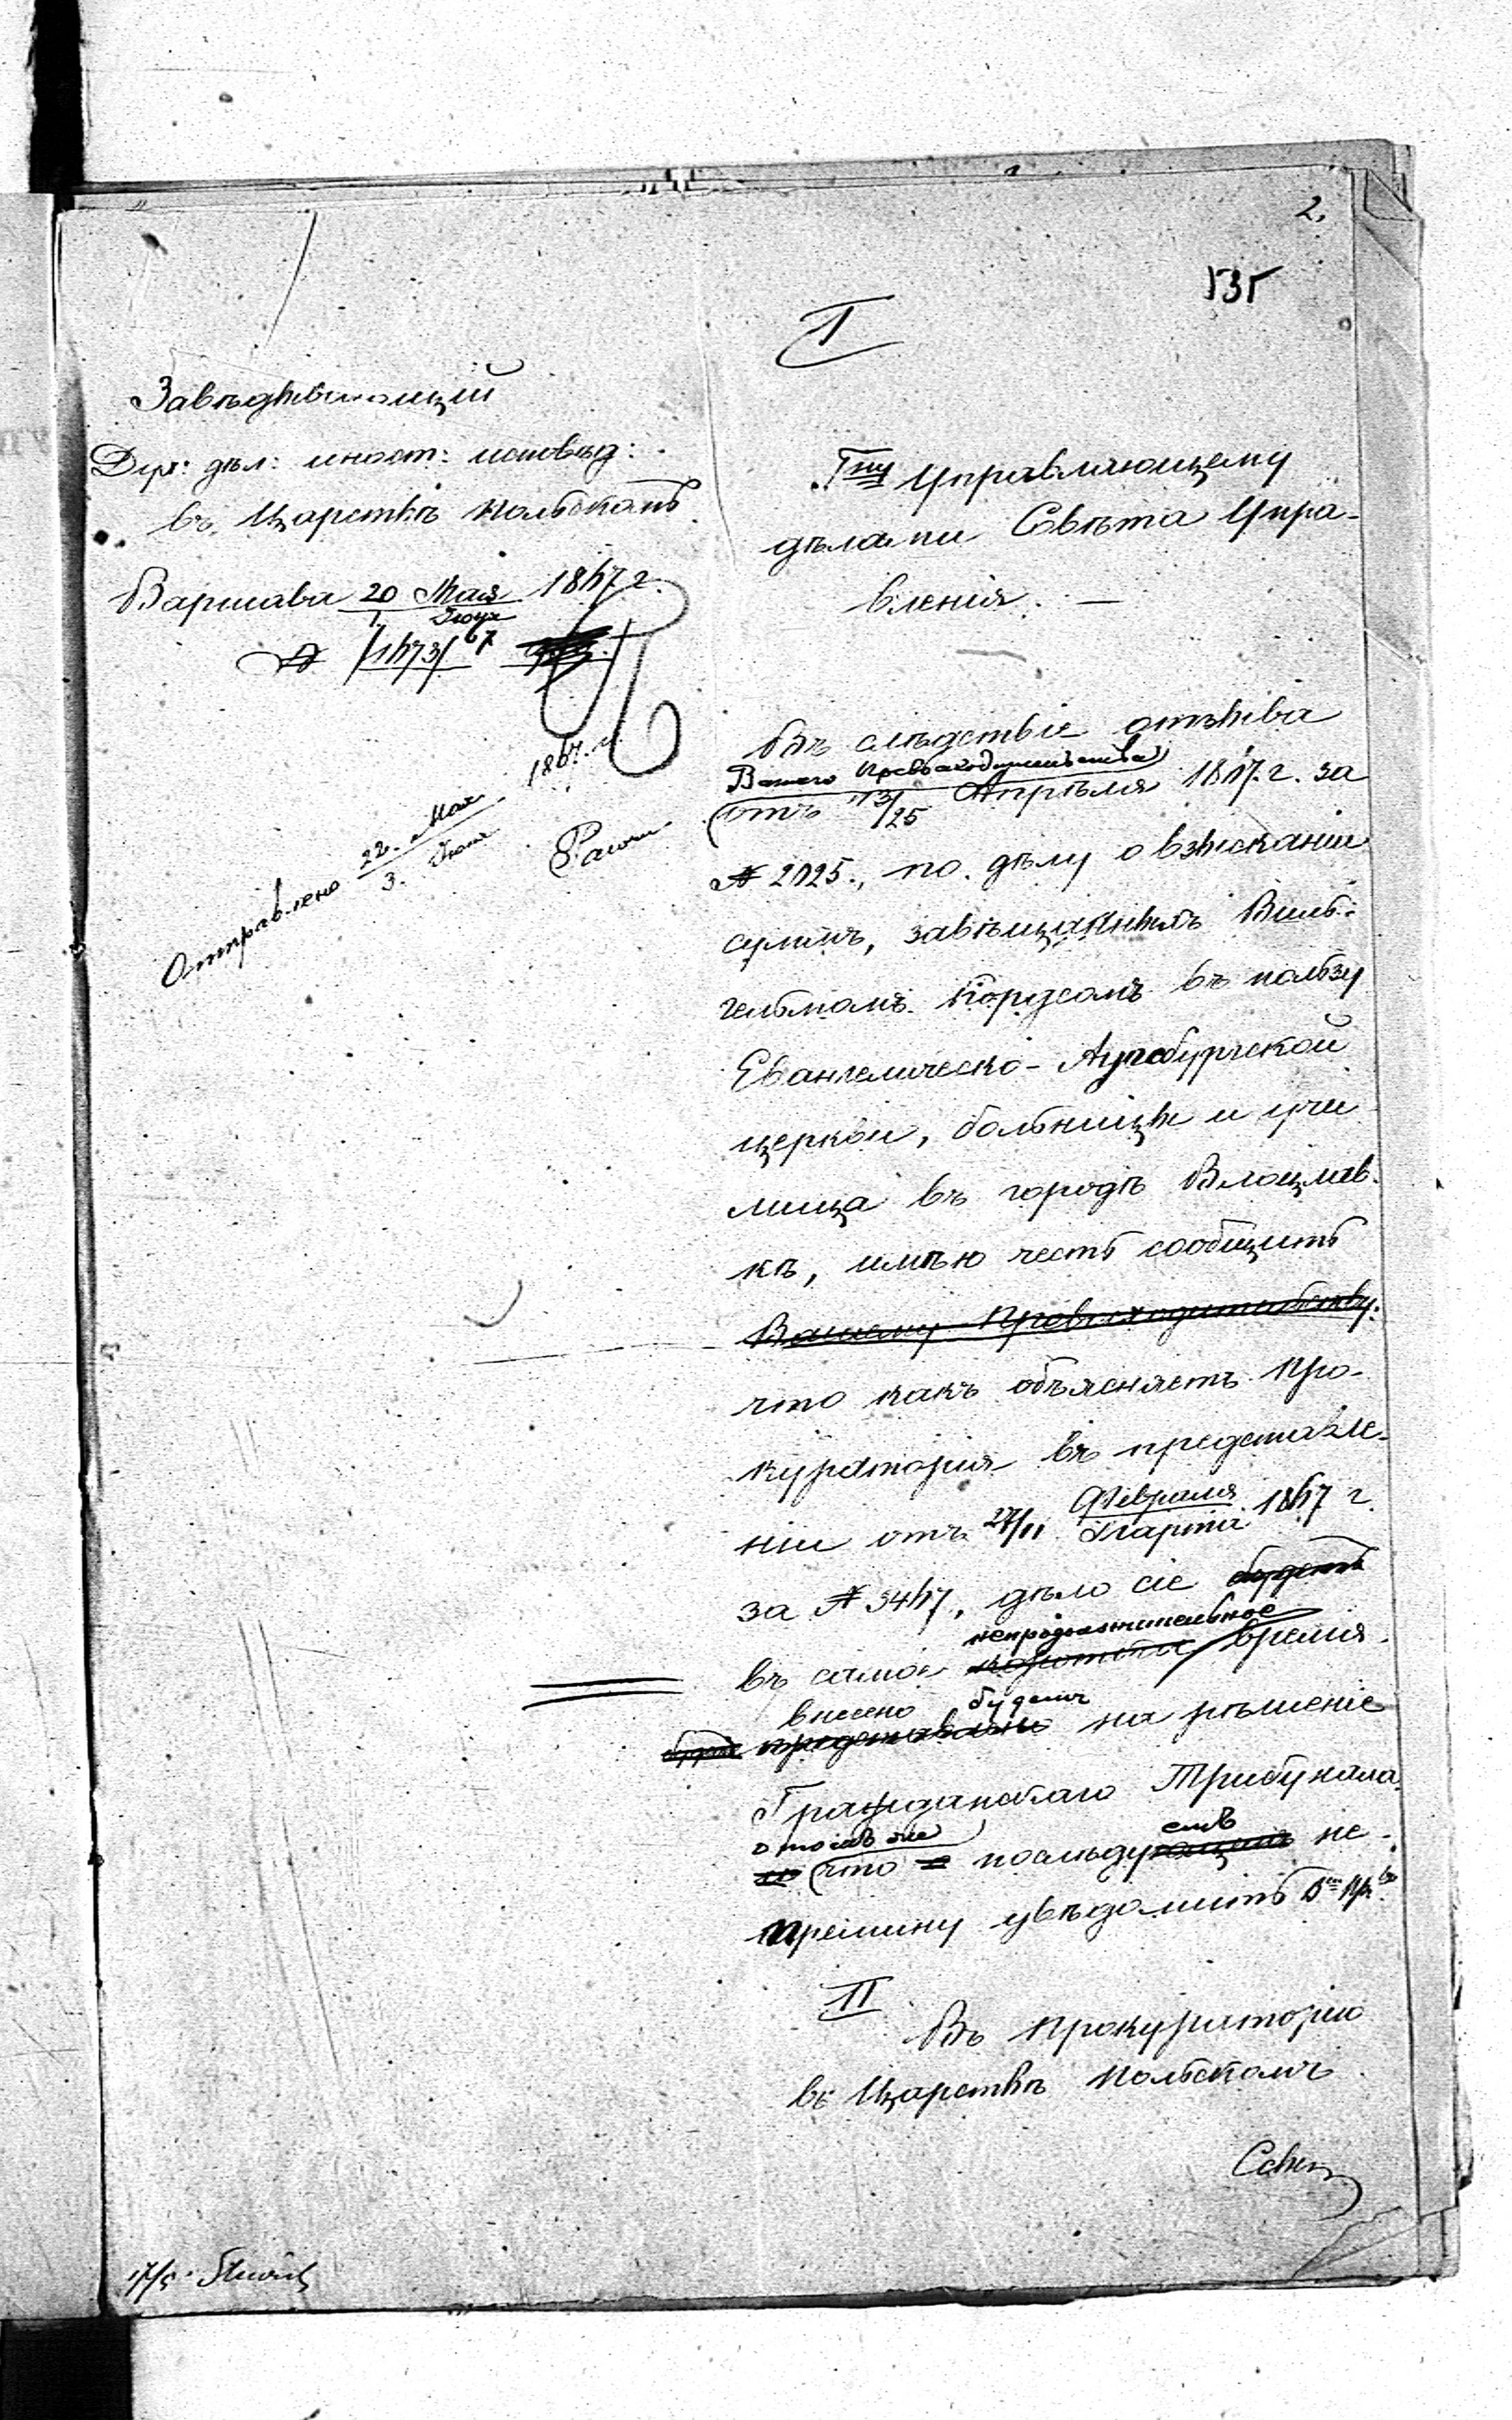 2.
135
I
Завѣдывающій
Дух: дѣл: иност: исповѣд:
въ Царствѣ Польскомъ
Варшава 20 Мая / 1 Іюня 1867 г.
№ 1673/67
Отправлено 22 Мая / 3 Іюня 1867 г.
Гну Управляющему
дѣлами Совѣта Упра-
вленія. —
Въ слѣдствіе отзыва
Вашего Превосходительства
отъ 13/25 Апрѣля 1867 г. за
№ 2025., по дѣлу о взысканіи
суммъ, завѣщанныхъ Виль-
гельмомъ въ пользу
Евангелическо-Аугсбургской
церкви, больницы и учи-
лища въ городѣ Влоцлав-
кѣ, имѣю честь сообщить
Вашему Превосходительству
что какъ объясняетъ Про-
кураторія въ представле-
ніи отъ 27/11 Февраля / Марта 1867 г.
за № 3467, дѣло сіе будетъ
непродолжительное
въ само время
внесено будетъ
на рѣшеніе
Гражданскаго Трибунала
что послѣдуетъ не-
премину увѣдомить В. Пр.
II
Въ Прокураторію
въ Царствѣ Польскомъ
17/5